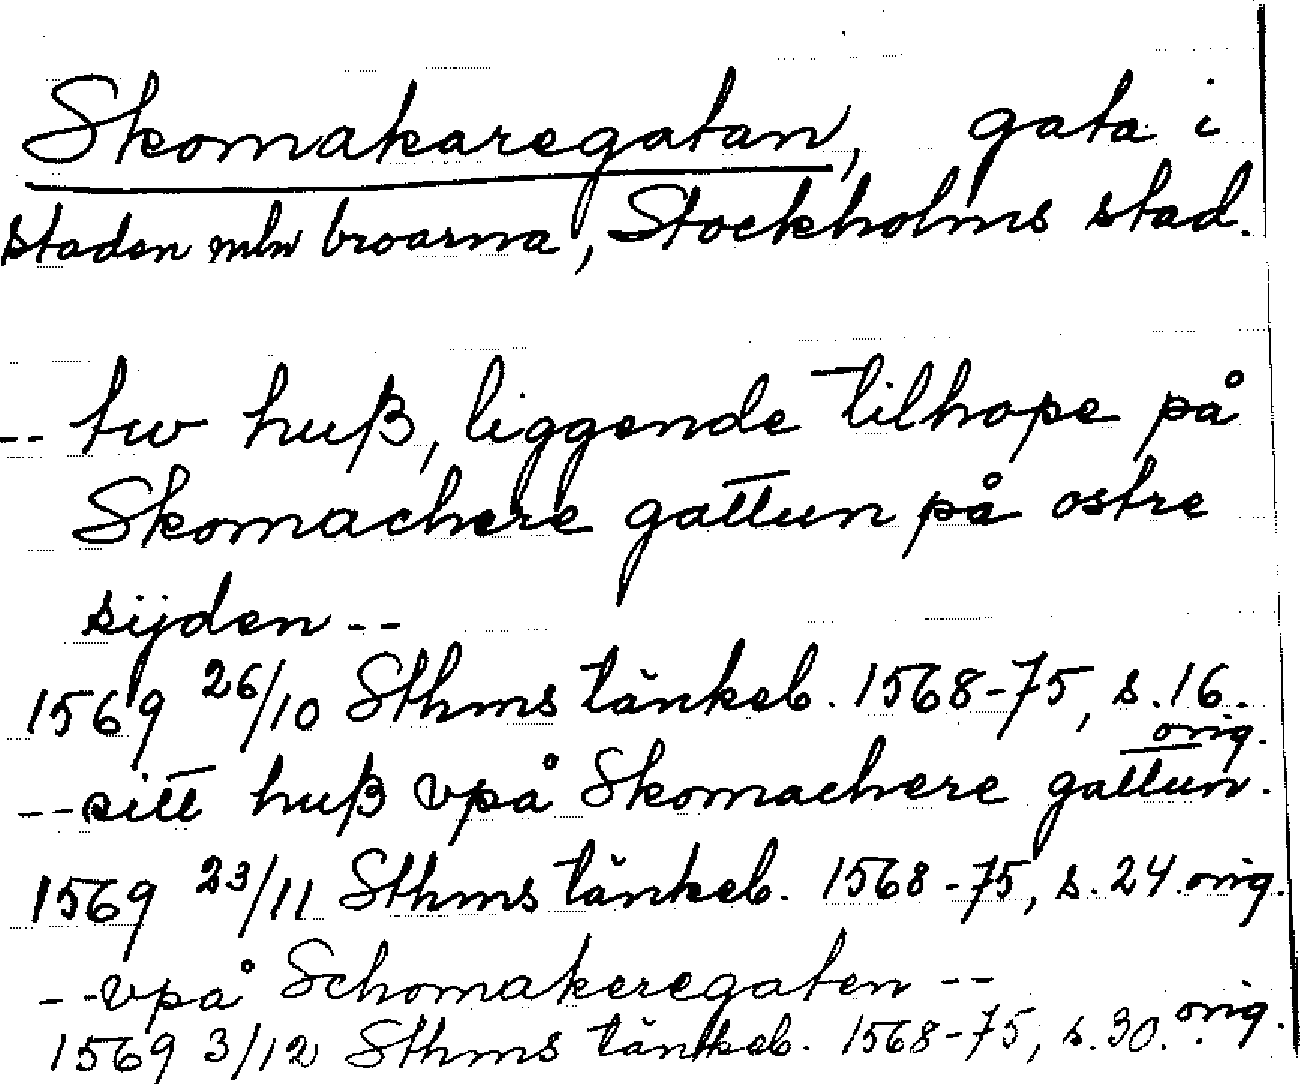 Skomakaregatan, gata i
staden mln broarna, Stockholms stad.
-- tw huß, liggende tilhope på
Skomachere gattun på ostre
sijden --
1569 26/10 Sthms tänkeb. 1568-75, s. 16.
orig.
-- sitt huß vpå Skomachere gattun.
1569 23/11 Sthms tänkeb. 1568-75, s. 24. orig.
-- vpå Schomakeregaten --
1569 3/12 Sthms tänkeb. 1568-75, s. 30. orig.